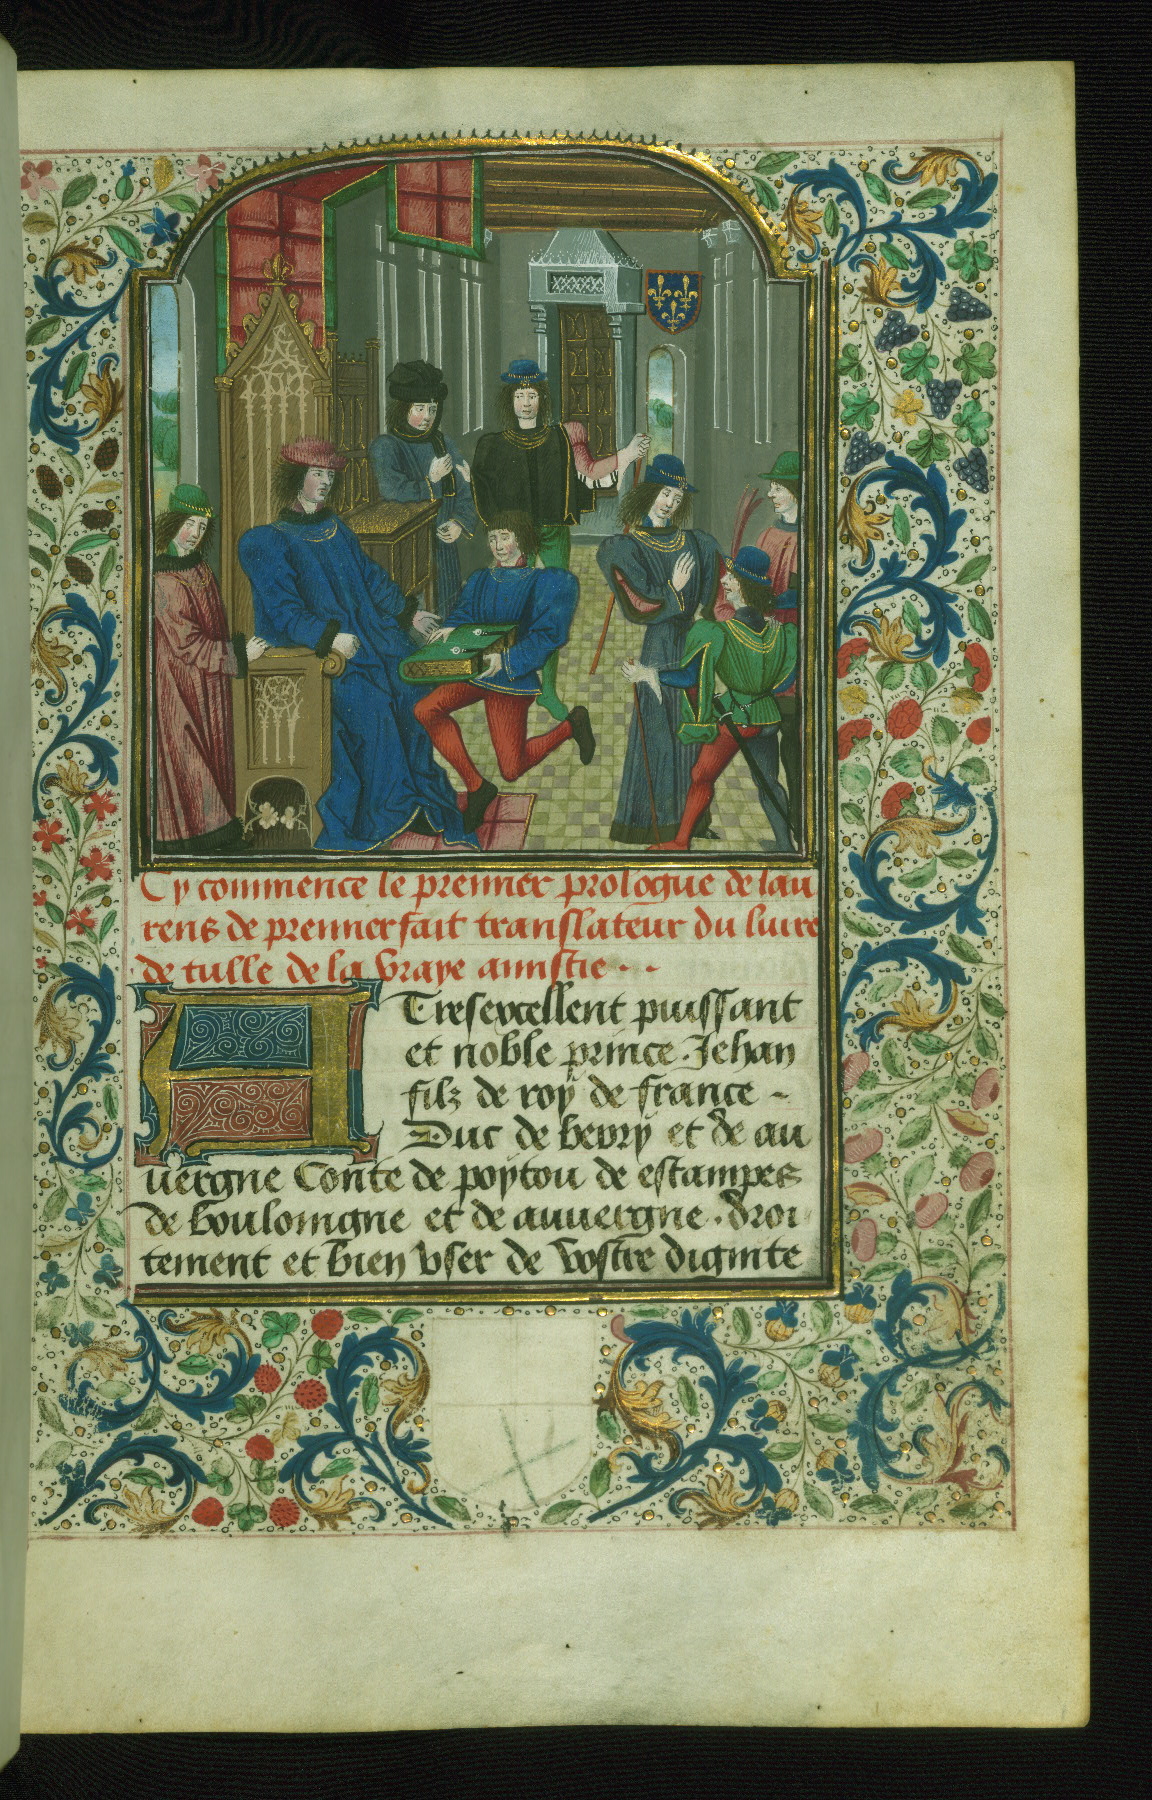 Cy commence le premier prologue de lau
rens de premierfait translateur du liure
de tulle de la vraye amistie
A Tresexcellent puissant
et noble prince Jehan
filz de roy de france
Duc de berry et de au
uergne Conte de poytou de estampes
de bouloingne et de auuergne . droi
tement et bien vser de vostre dignite